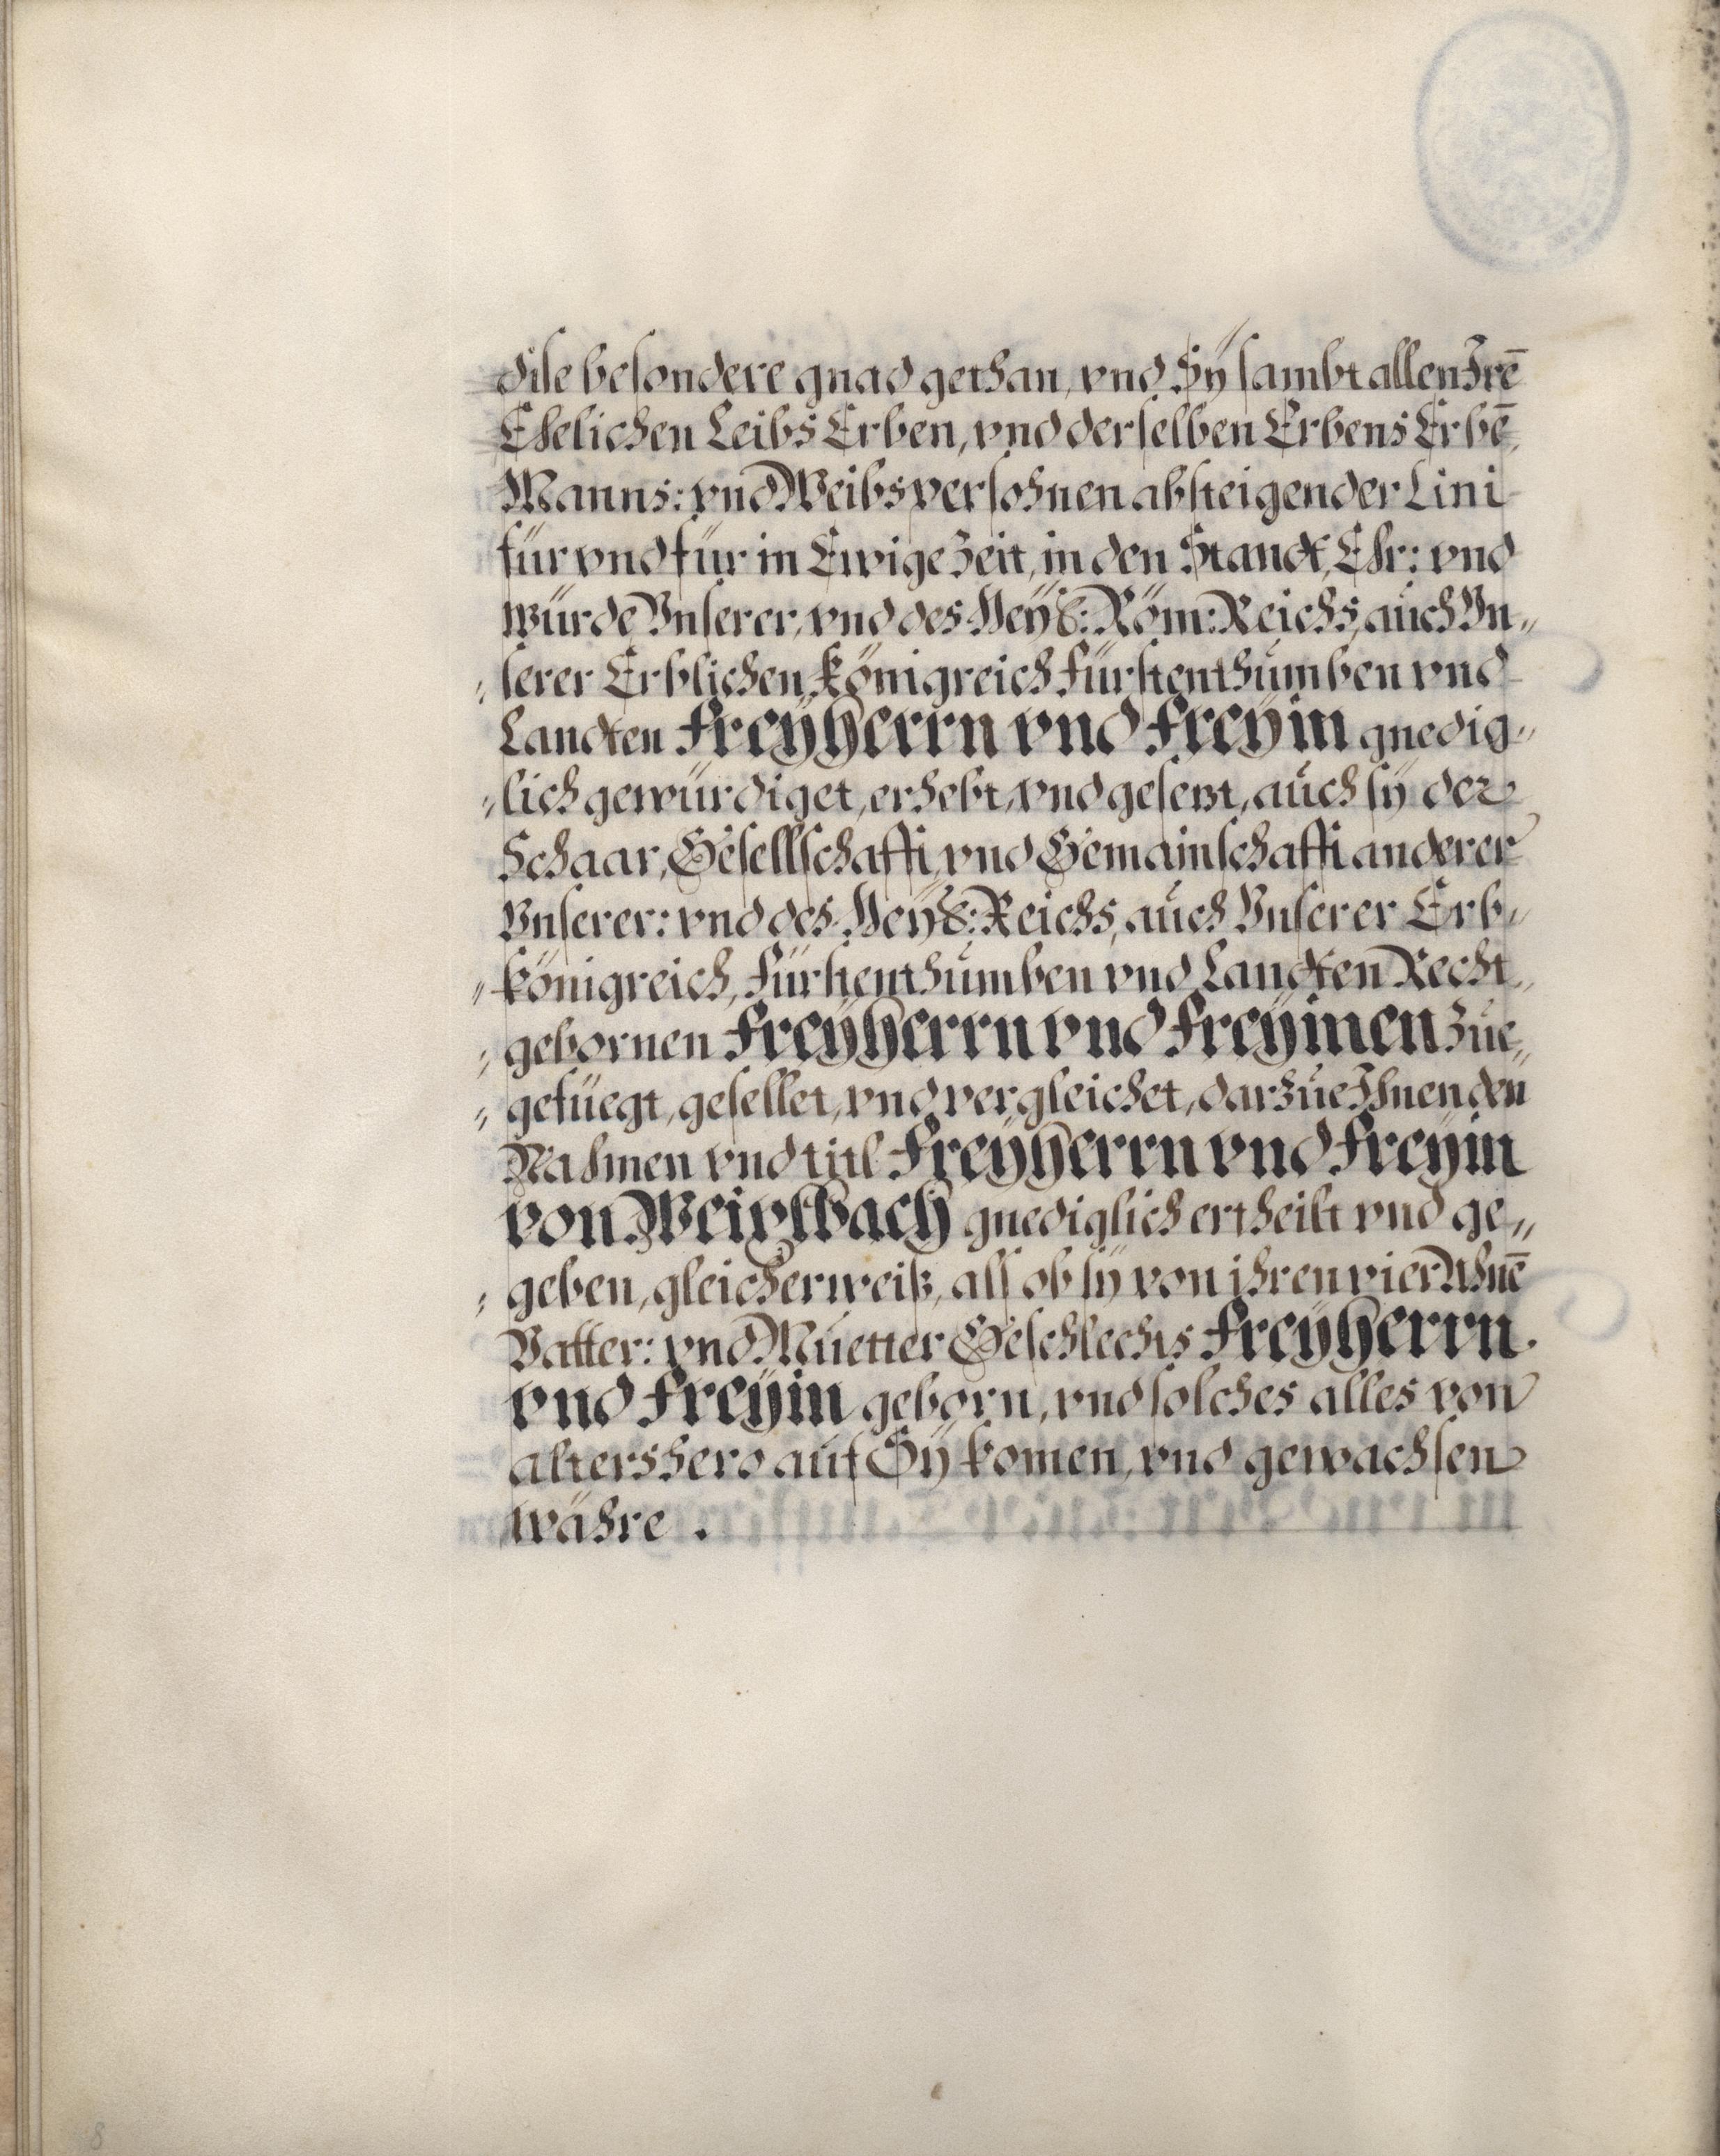 diſe beſondere gnad gethan, vnd Sÿ ſambt allen Irē
Ehelichen Leibs Erben, vnd derſelben Erbens Erbē,
Manns: vnd Weibsperſohnen abſteigender Lini
für vnd für in Ewige Zeit, in den Standt, Ehr: vnd
würde Vnſerer, vnd des Heÿl: Röm: Reichs, auch Vn„
„ſerer Erblichen Königreich Fürſtenthumben vnd
Landten Freÿherrn vnd Freÿin gnedig„
„lich gewürdiget, erhebt, vnd geſetzt, auch ſÿ der
Schaar, Geſellſchafft, vnd Gemainſchafft anderer
Vnſerer: vnd des Heÿl: Reichs, auch Vnſerer Erb„
„königreich, Fürſtenthumben vnd Landten Recht„
„gebornen Freÿherrn vnd Freÿinen zue„
„gefüegt, geſellet, vnd vergleichet, darzue Ihnen den
Nahmen vnd titl Freÿherrn vnd Freÿin
von gnediglich ertheilt vnd ge„
„geben, gleicherweiß, alſ ob ſÿ von ihren vier Ahnē
Vatter: vnd Muetter Geſchlechts Freÿherrn
vnd Freÿin geborn, vnd ſolches alles von
altershero auf Sÿ komen, vnd gewachſen
währe .
8